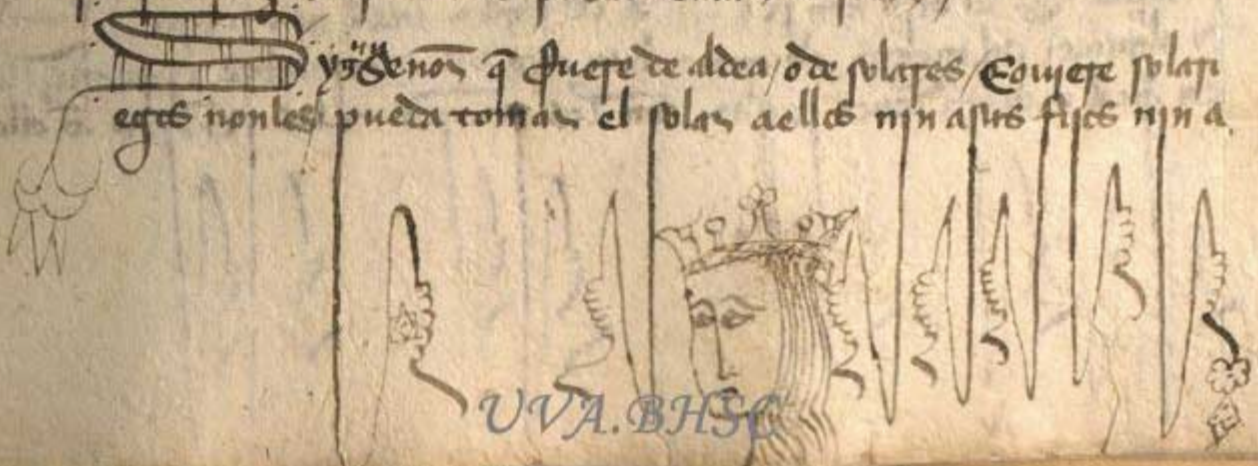 Sy señor q̄ fuere de aldea / o de solares / E ouiere solari
egos non les pueda tomar el solar a ellos nin a sus fijos nin a
UVA.BHSC